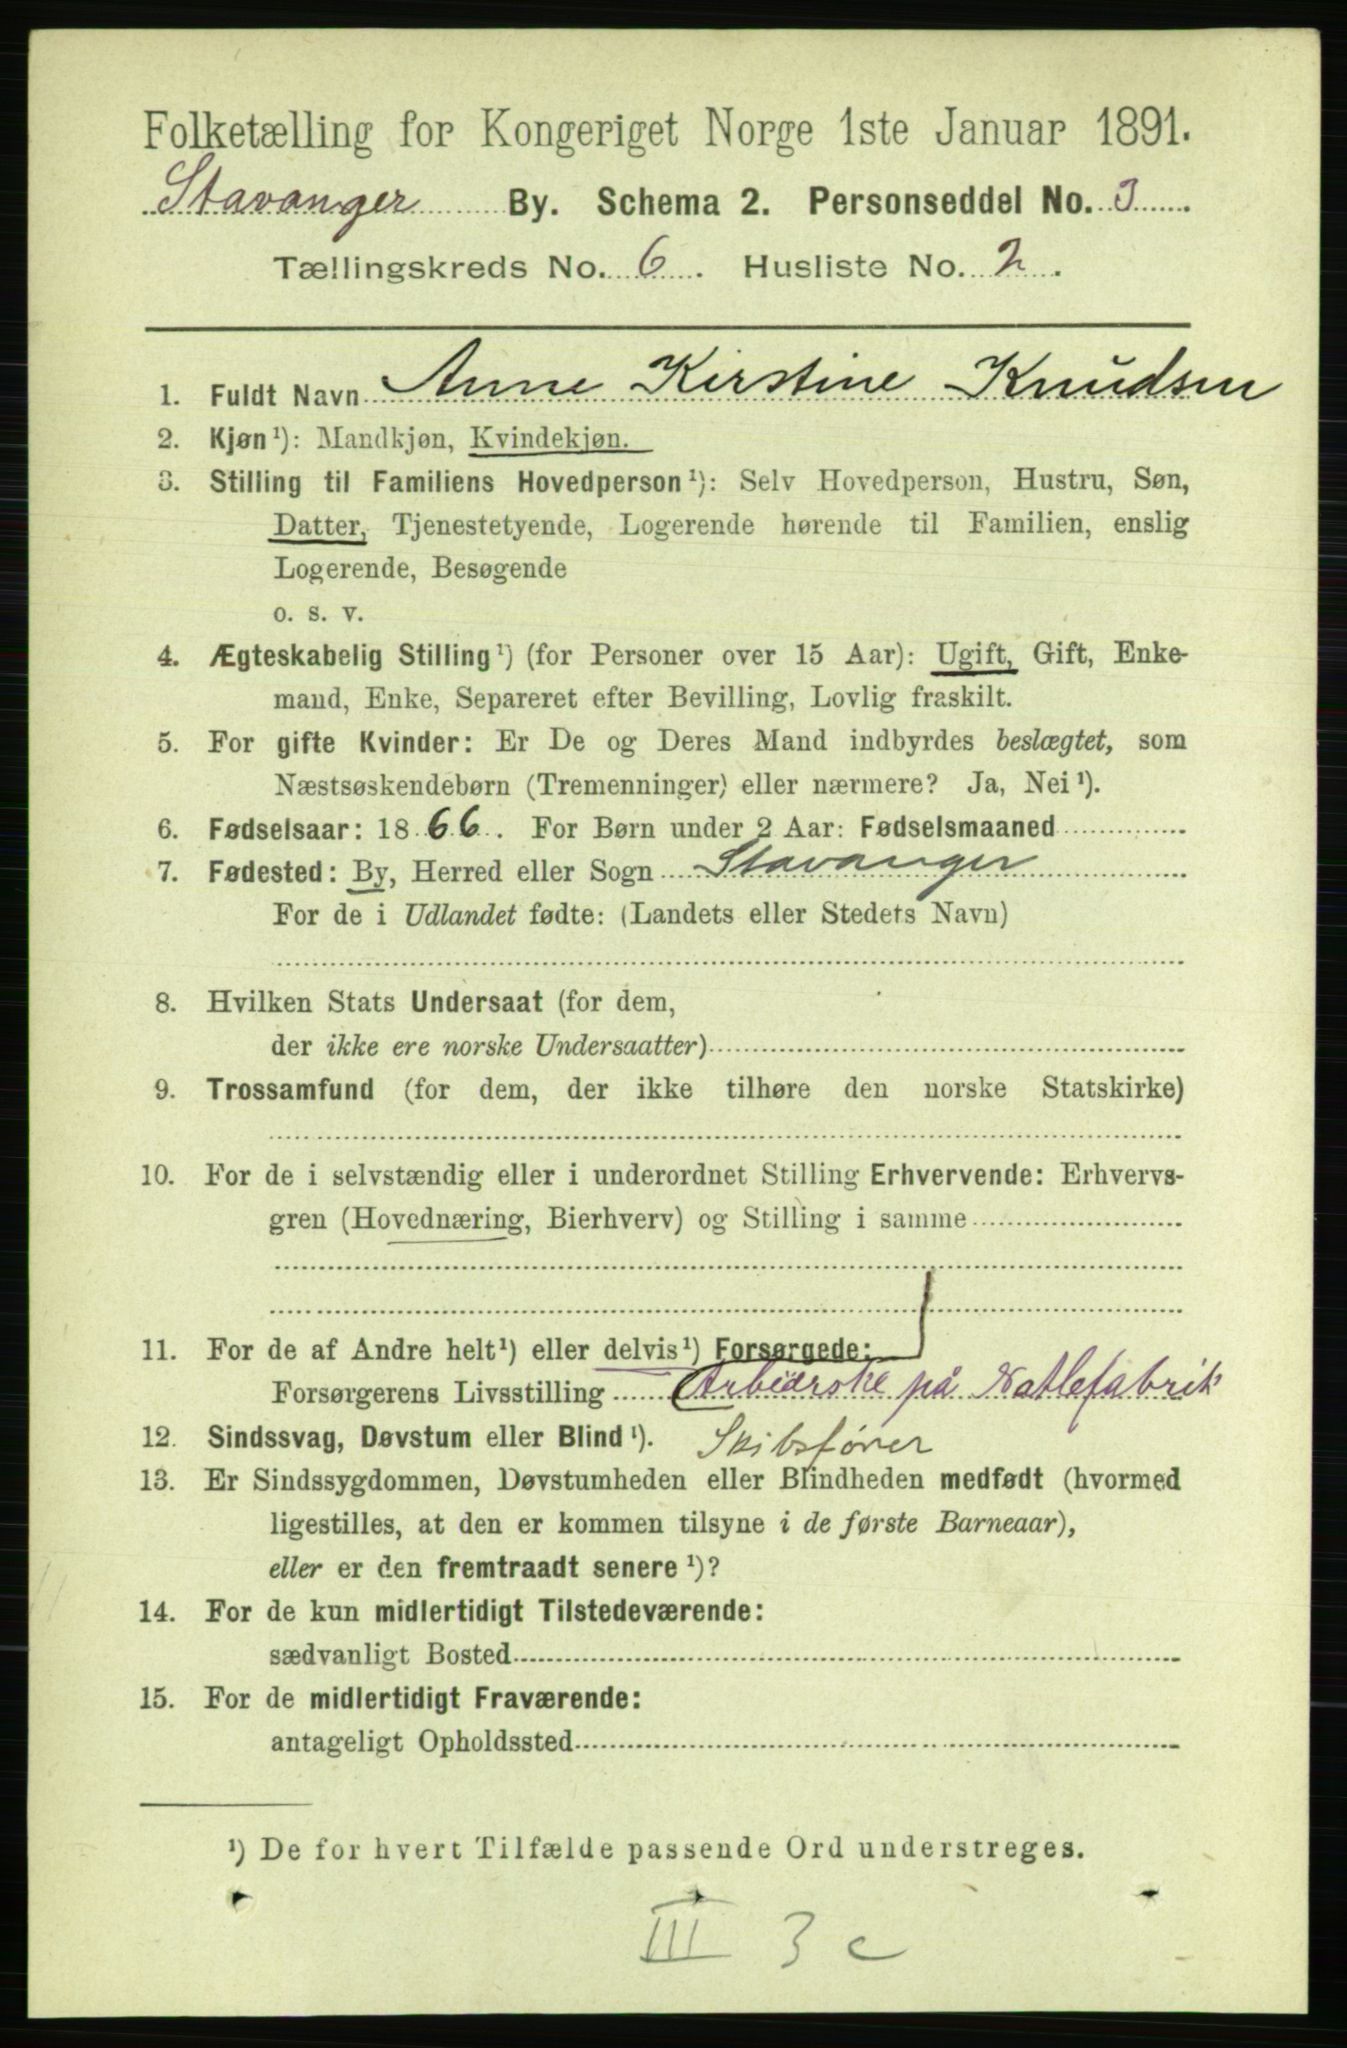 Folketælling for Kongeriget Norge 1ste Januar 1891.
Stavanger By. Schema 2. Personseddel No. 3
Tællingskreds No. 6. Husliste No. 2.
1. Fuldt Navn Anne Kirstine Knudsen
2. Kjøn ¹): Mandkjøn, Kvindekjøn.
3. Stilling til Familiens Hovedperson ¹): Selv Hovedperson, Hustru, Søn,
Datter, Tjenestetyende, Logerende hørende til Familien, enslig
Logerende, Besøgende
o. s. v.
4. Ægteskabelig Stilling ¹) (for Personer over 15 Aar): Ugift, Gift, Enke-
mand, Enke, Separeret efter Bevilling, Lovlig fraskilt.
5. For gifte Kvinder: Er De og Deres Mand indbyrdes beslægtet, som
Næstsøskendebørn (Tremenninger) eller nærmere? Ja, Nei ¹).
6. Fødselsaar: 1866. For Børn under 2 Aar: Fødselsmaaned
7. Fødested: By, Herred eller Sogn Stavanger
For de i Udlandet fødte: (Landets eller Stedets Navn)
8. Hvilken Stats Undersaat (for dem,
der ikke ere norske Undersaatter)
9. Trossamfund (for dem, der ikke tilhøre den norske Statskirke)
10. For de i selvstændig eller i underordnet Stilling Erhvervende: Erhvervs-
gren (Hovednæring, Bierhverv) og Stilling i samme
11. For de af Andre helt ¹) eller delvis ¹) Forsørgede:
Forsørgerens Livsstilling Arbeiderske på
12. Sindssvag, Døvstum eller Blind ¹). Skibsfører
13. Er Sindssygdommen, Døvstumheden eller Blindheden medfødt (hvormed
ligestilles, at den er kommen tilsyne i de første Barneaar),
eller er den fremtraadt senere ¹)?
14. For de kun midlertidigt Tilstedeværende:
sædvanligt Bosted
15. For de midlertidigt Fraværende:
antageligt Opholdssted
¹) De for hvert Tilfælde passende Ord understreges.
III 3 c